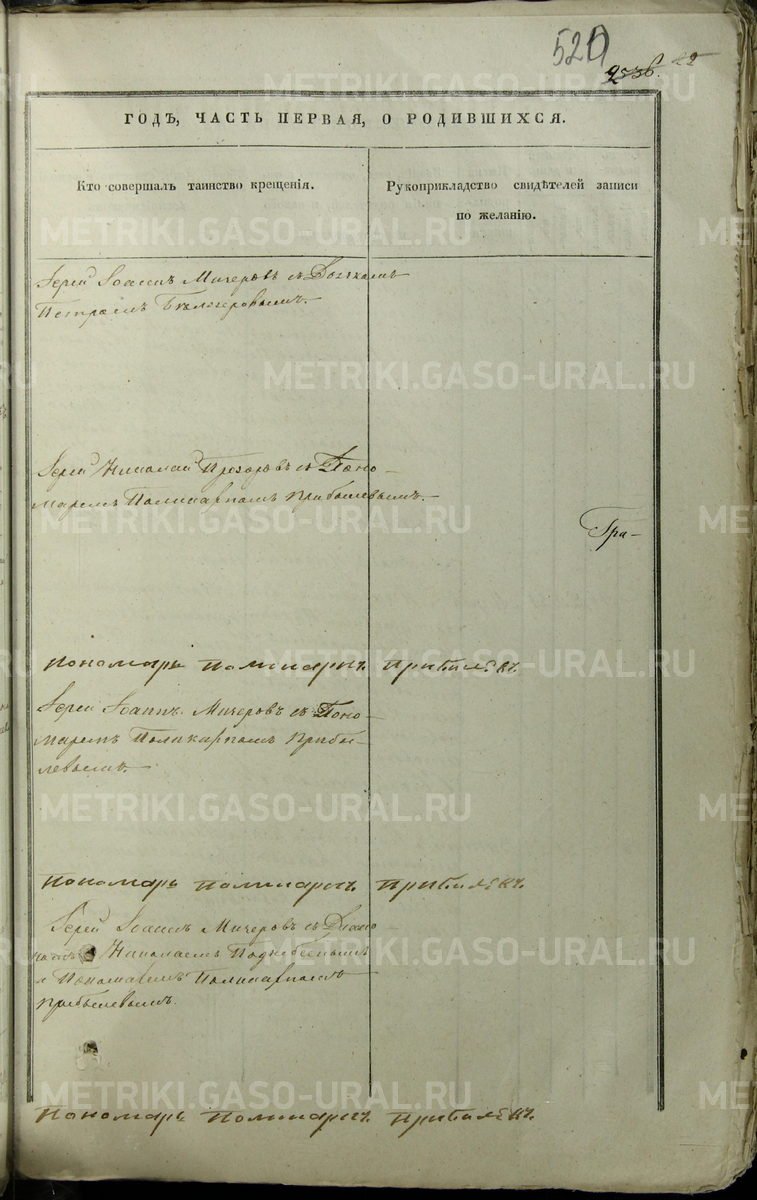 520
ГОДЪ, ЧАСТЬ ПЕРВАЯ, О РОДИВШИХСЯ.
Кто совершалъ таинство крещенія.
Рукоприкладство свидѣтелей записи
по желанію.
Іерей Іоаннъ Мичеровъ съ Дьячкомъ
Петромъ Бѣлозеровымъ.
Іерей Николай Прозоровъ съ Поно-
маремъ Поликарпомъ Прибылевымъ.
Гра-
Пономарь Поликарпъ Прибылевъ.
Іерей Іоаннъ Мичеровъ съ Поно-
маремъ Поликарпомъ Прибы-
левымъ.
Пономарь Поликарпъ Прибылевъ.
Іерей Іоаннъ Мичеровъ съ Діако
номъ Николаемъ Поднебеснымъ
и Пономаремъ Поликарпомъ
Прибылевымъ.
Пономарь Поликарпъ Прибылевъ.
METRIKI.GASO-URAL.RU